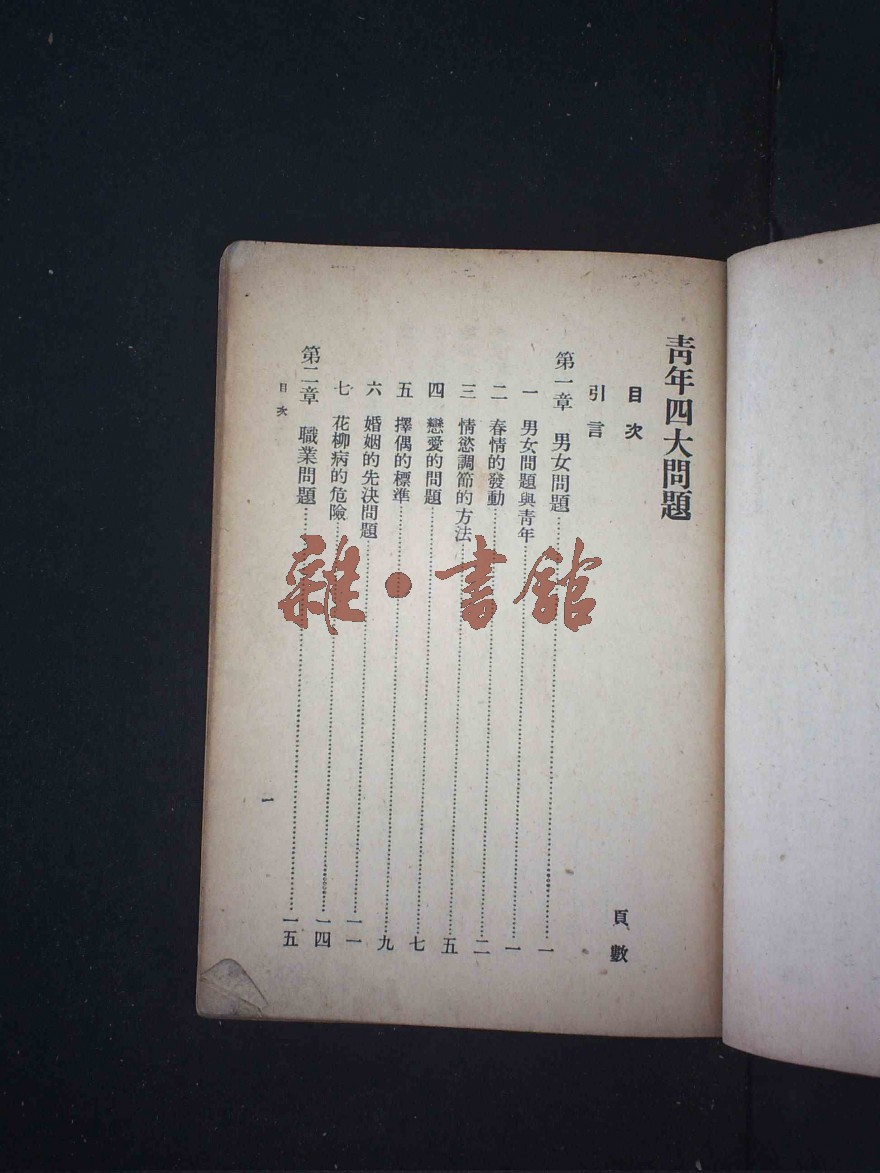 靑年四大問題
目次
頁數
引言
第一章 男女問題……一
一 男女問題與靑年……一
二 春情的發動……二
三 情慾調節的方法……五
四 戀愛的問題……七
五 擇偶的標準……九
六 婚姻的先決問題……一一
七 花柳病的危險……一四
第二章 職業問題……一五
目次
一
雜·書館